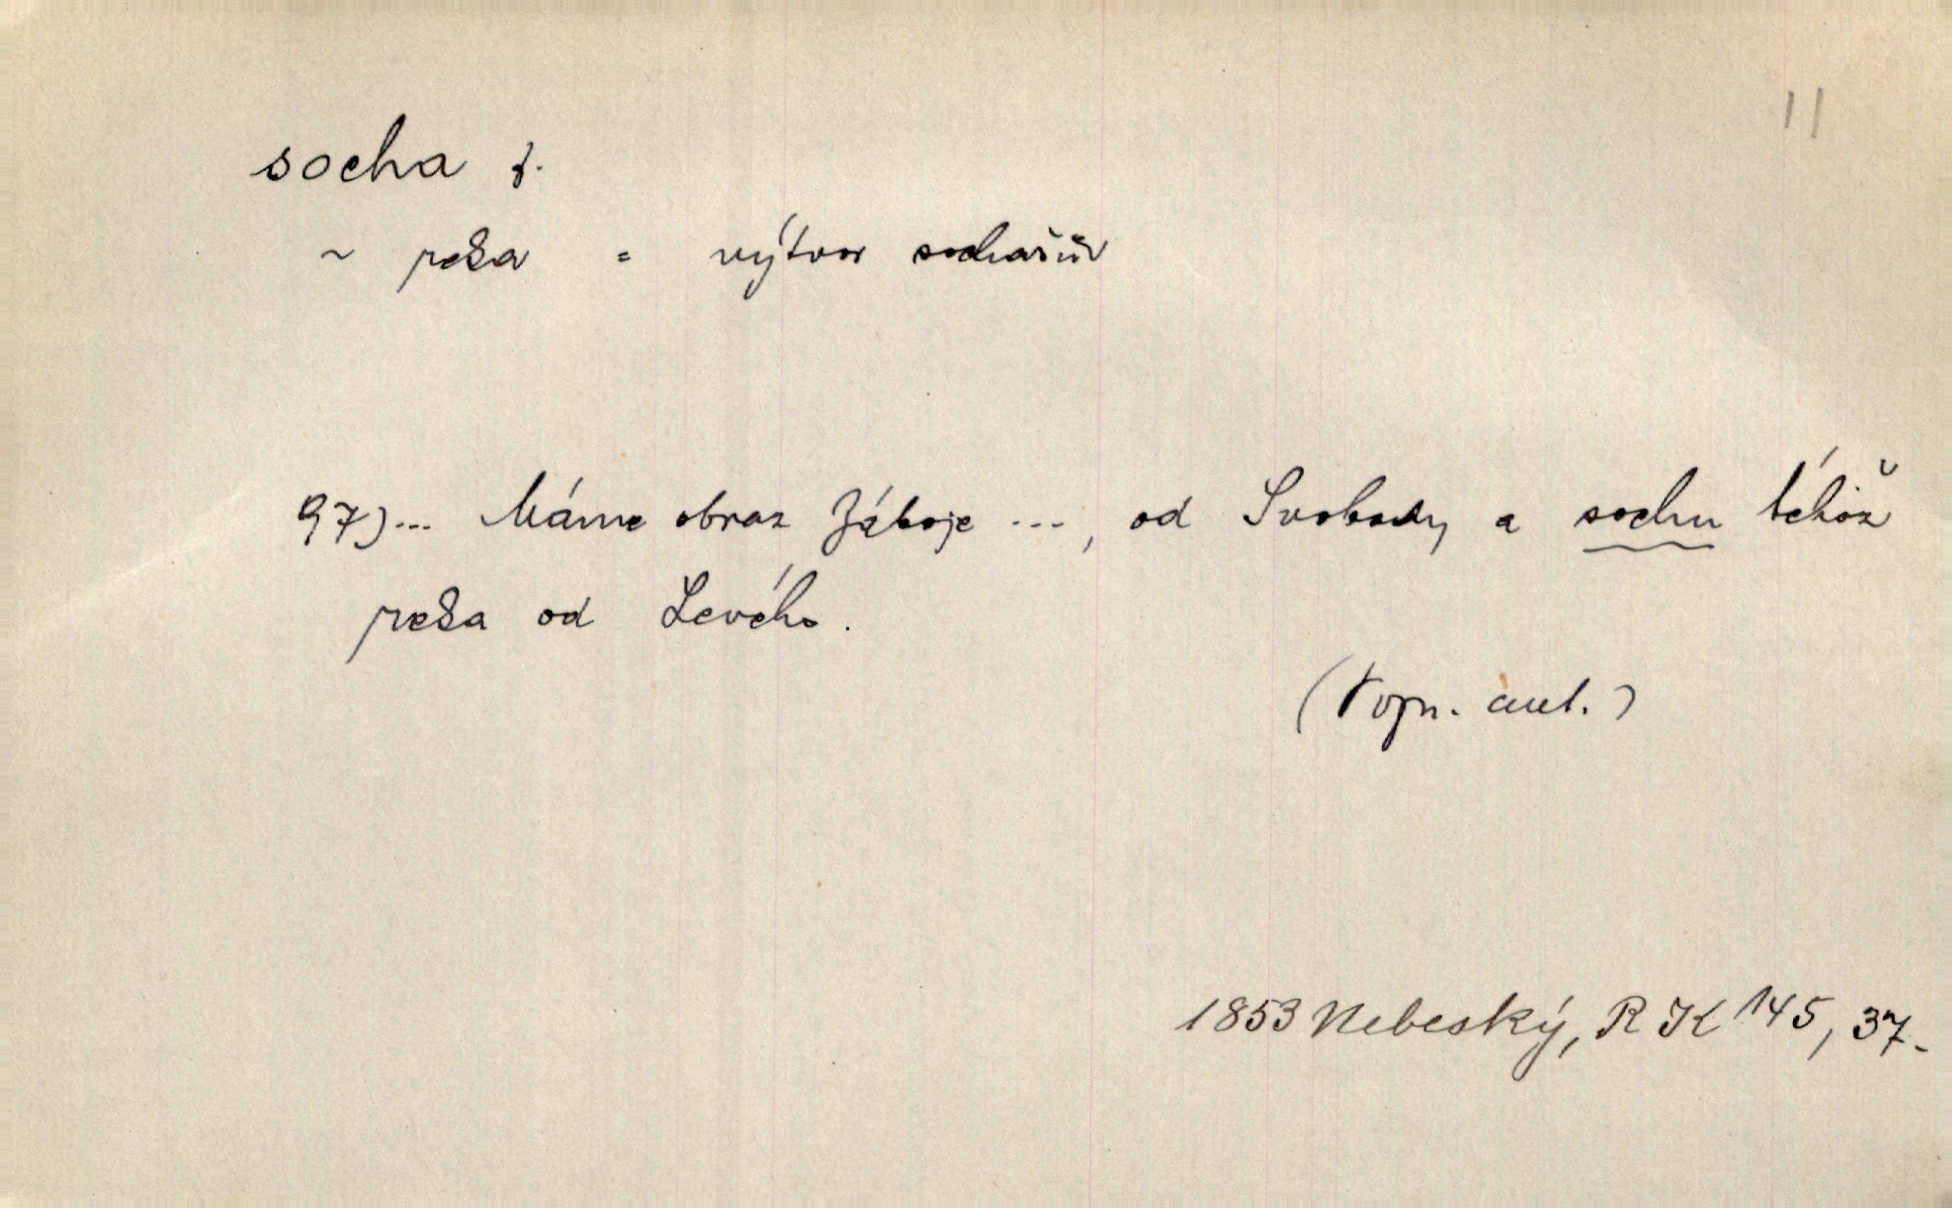 11
socha f.
~ reka = výtvor sochařův
97)... Máme obraz Záboje ..., od Svobody a sochu téhož
reka od Levého.
(Pozn. aut.)
1853 Nebeský, RK 145, 37.